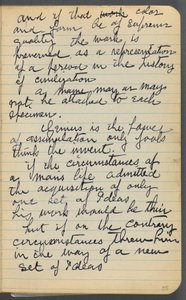 and if that work color
and form be of supreme
quality the work is
preserved as a representation
of a period in the history
of civilization
a name may or may
not be attached to each
specimen.
Genius is the power
of assimilation only fools
think they invent.
if the circumstances of
a mans life admitted
the acquisition of only
one set of Ideas
his work should be thin
but if on the contrary
circumstances threw him
in the way of a new
set of Ideas